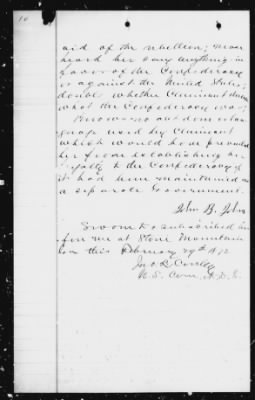 10
aid of the rebellion; never
heard her say anything in
favor of the Confederacy
or against the United States;
doubt whether Claimant knew
what the Confederacy was;
Knows no act done or lan-
guage used by Claimant
which would have prevented
her from establishing her
loyalty to the Confederacy if
it had been maintained as
a separate Government.
John B.
Sworn to & subscribed be-
fore me at Stone Mountain
this February 29th 1872
U. S. Com.